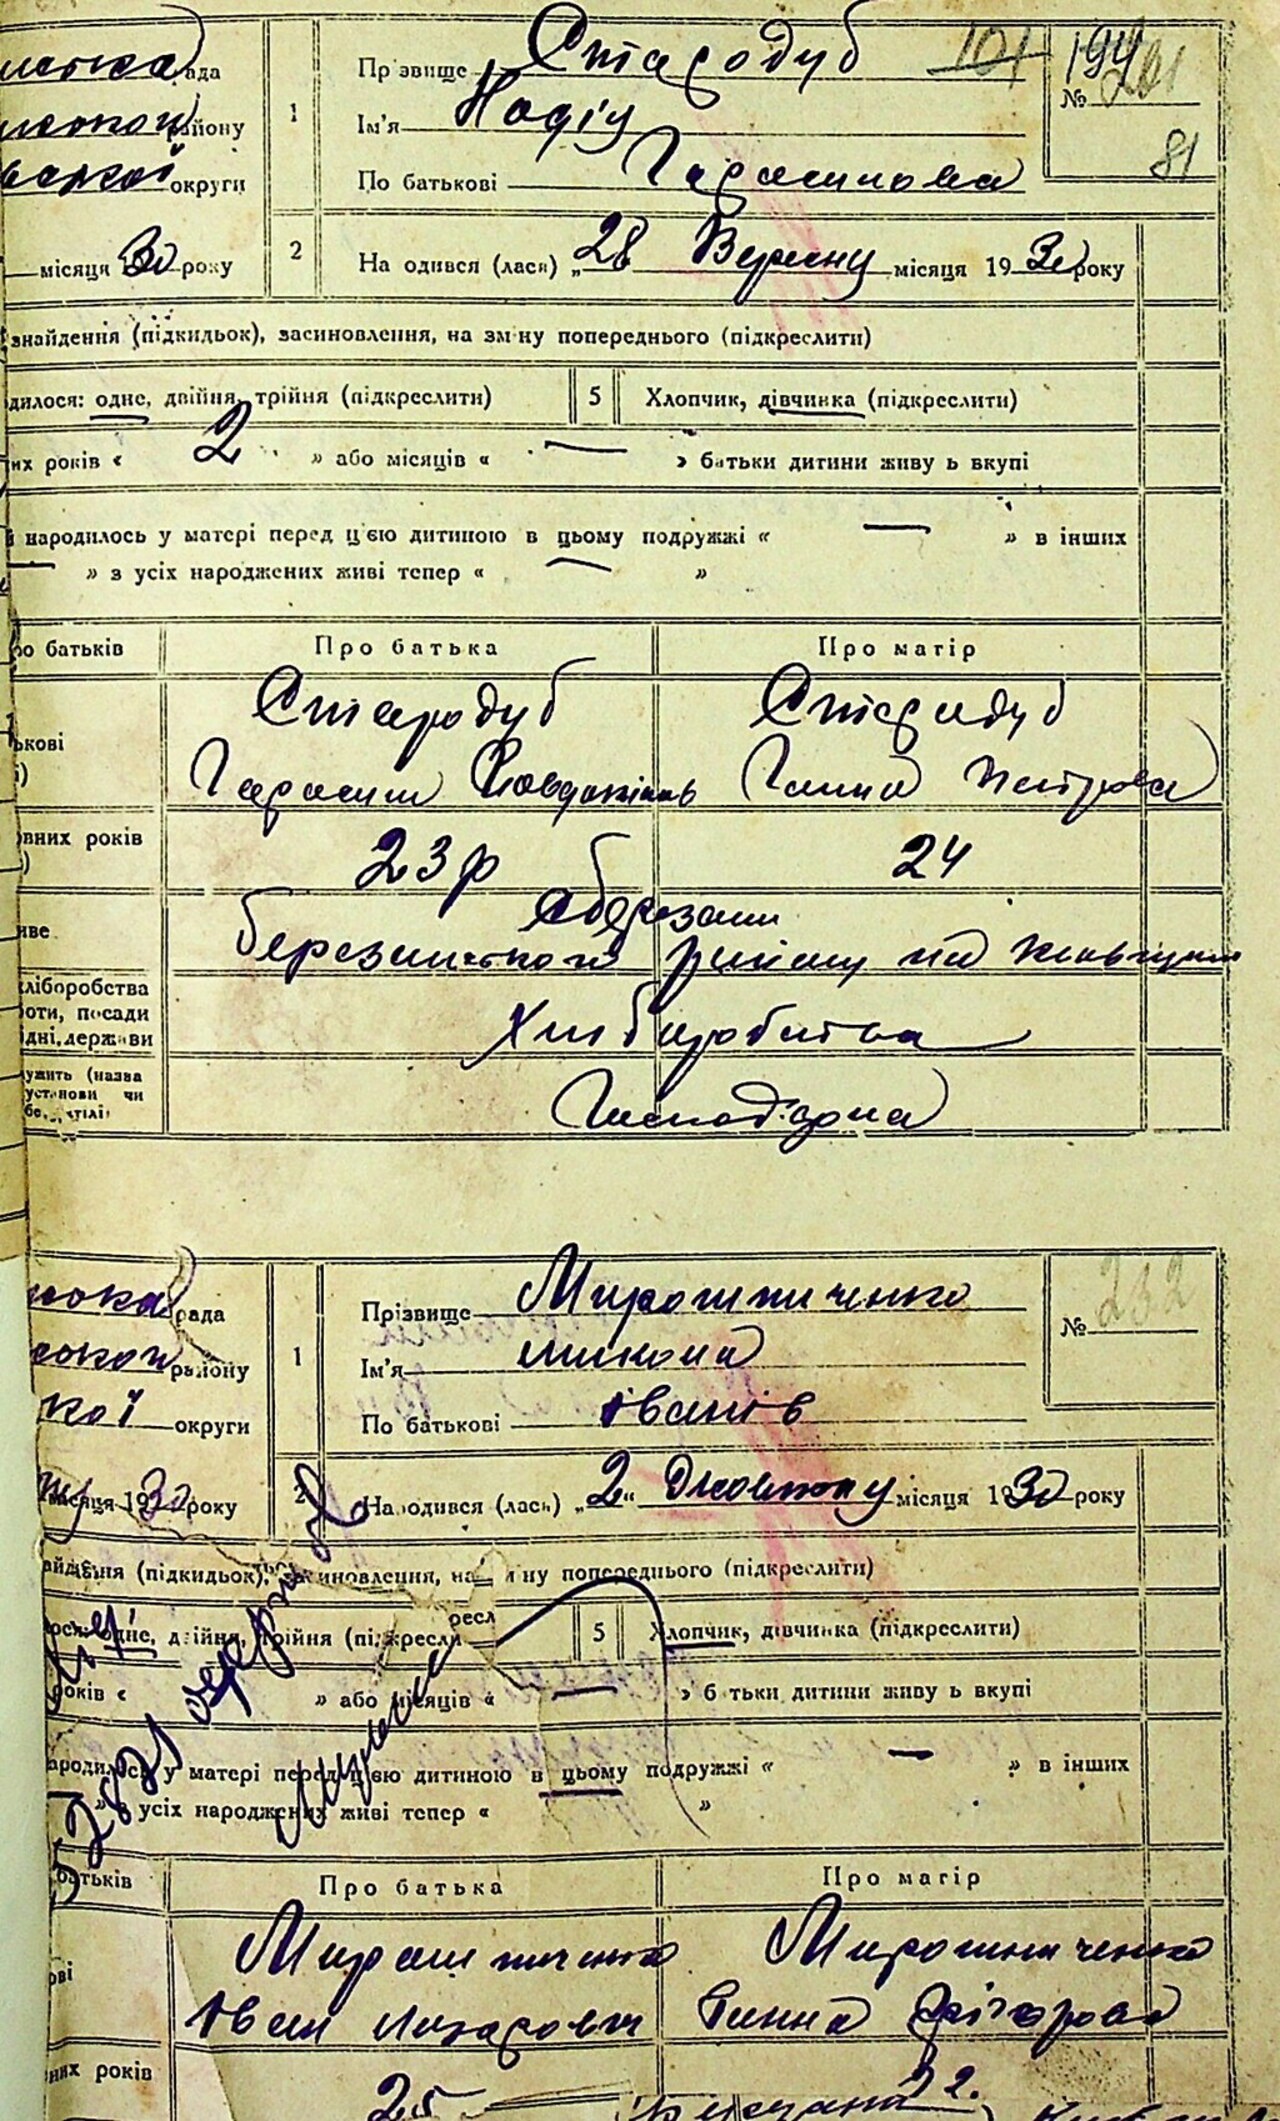 рада
Прізвище Стародуб 101 194
№ 201
району
1
Ім'я Надія
81
округи
По батькові Гарасимова
місяця 30 року
2
Народився (лася) „28 Вересня місяця 1930 року
знайдення (підкидьок), засиновлення, на зміну попереднього (підкреслити)
дилося: одне, двійня, трійня (підкреслити) 5 Хлопчик, дівчинка (підкреслити)
их років « 2 » або місяців « — » батьки дитини живуть вкупі
народилось у матері перед цією дитиною в цьому подружжі « — » в інших
— » з усіх народжених живі тепер « — »
ро батьків Про батька Про матір
Стародуб Стародуб
ькові
Гарасим Ганна Петрова
овних років
23 р 24
с Березани
Березанського району на Київщині
хліборобства
оти, посади
Хліборобства
держави
ужить (назва
установи чи
Господарка
рада
Прізвище Мирошниченко
№ 232
району
1
Ім'я Микола
округи
По батькові Іванів
місяця 1930 року
2
Народився (лася) „2“ Жовтня місяця 1930 року
(підкидьок), засиновлення, на зміну попереднього (підкреслити)
одне, двійня, трійня (підкресли 5 Хлопчик, дівчинка (підкреслити)
років « » або місяців « — » батьки дитини живуть вкупі
народилось у матері перед цією дитиною в цьому подружжі « — » в інших
» з усіх народжених живі тепер « »
батьків Про батька Про матір
Мирошниченко Мирошниченко
ові
Іван Ганна
них років
25 22.